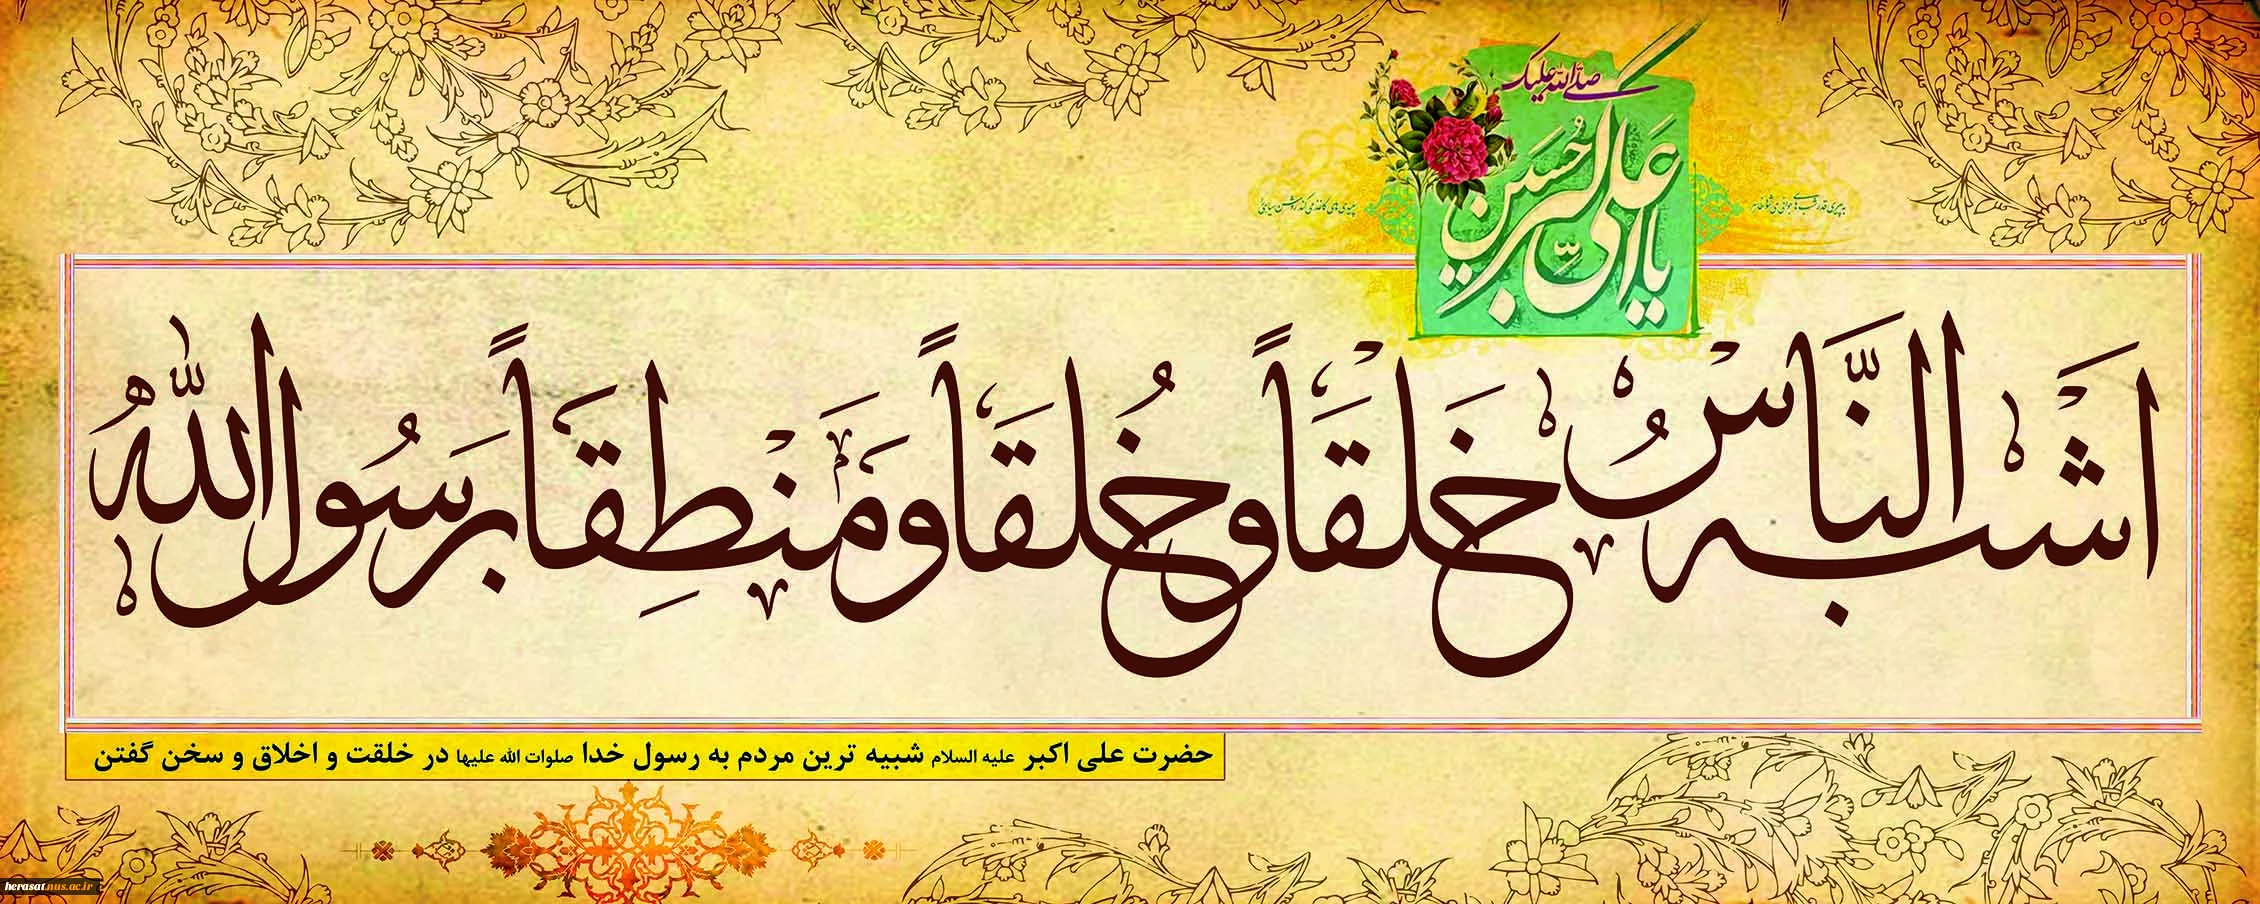 صلی الله علیک
یا علی اکبر حسین
اشبه النّاسُ خَلْقَاً وخُلقَاً ومَنْطِقَاً برَسُول اللّهُ
حضرت علی اکبر علیه السلام شبیه ترین مردم به رسول خدا صلوات الله علیها در خلقت و اخلاق و سخن گفتن
herasat.nus.ac.ir